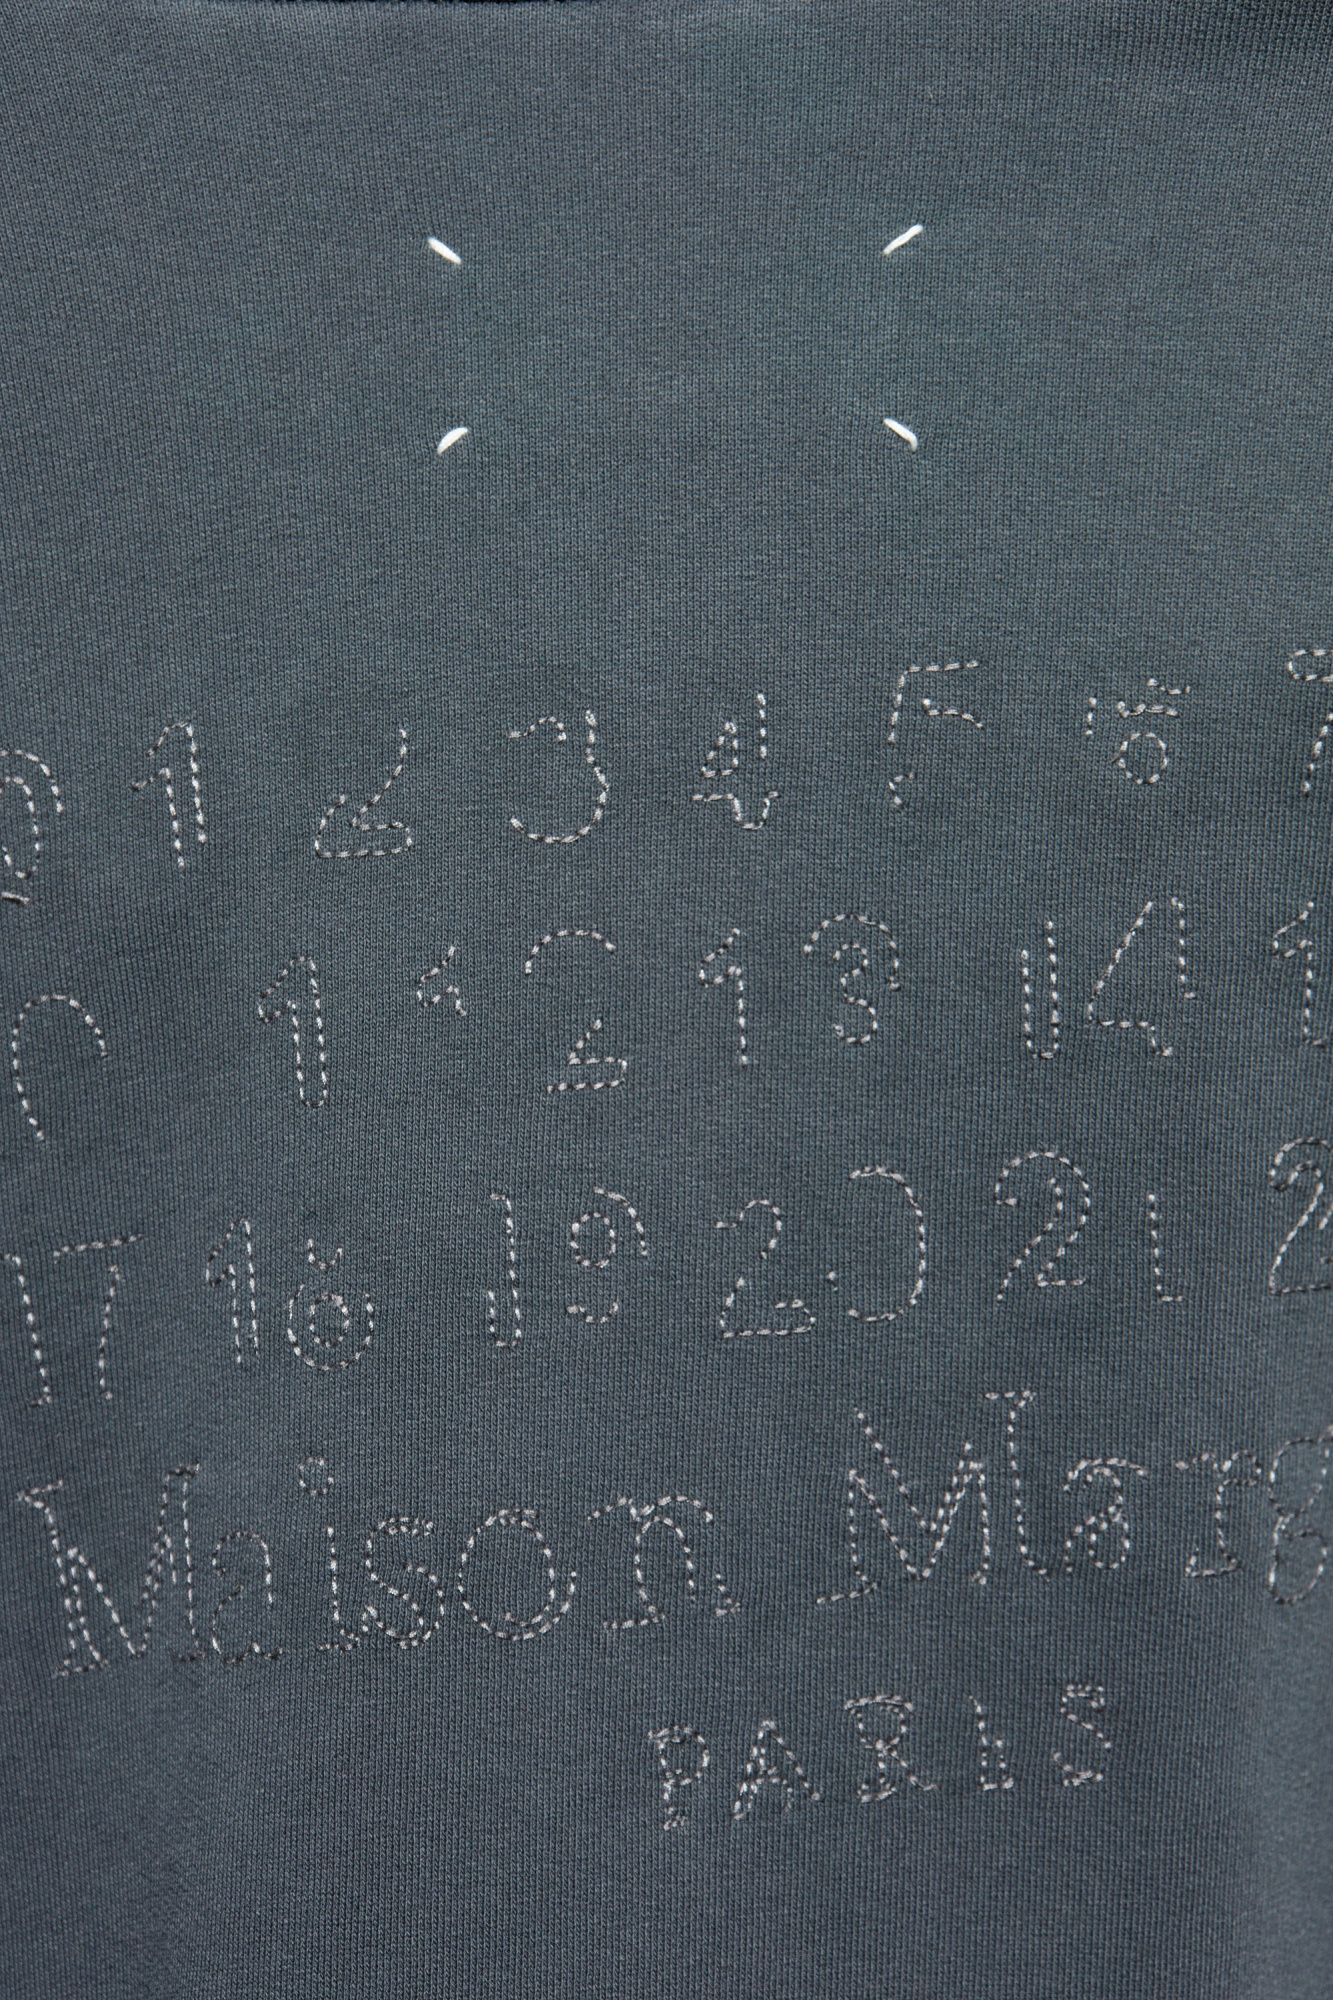 0 1 2 3 4 5 6 7
1 12 13 14
17 18 19 20 21 2
Maison Marg
PARIS